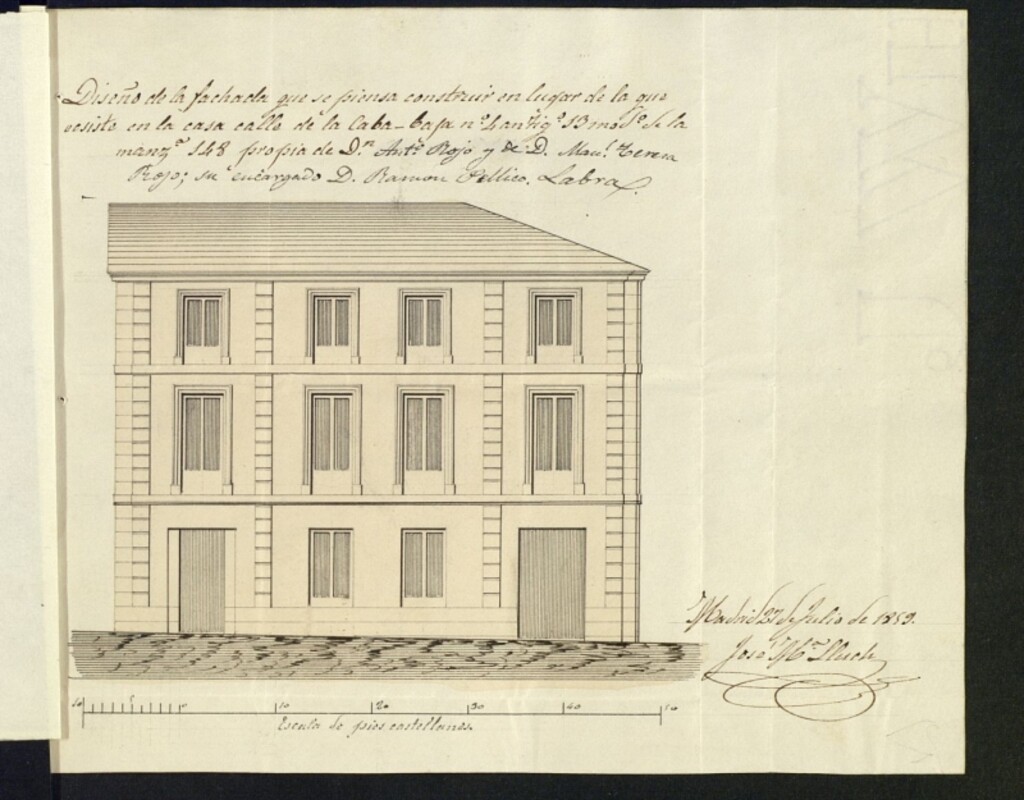 Diseño de la fachada que se piensa construir en lugar de la que
ecsiste en la casa calle de la Caba-baja nº 4 antigº 13 modº de la
manzª 148 propia de Dⁿ Antº Rojo y de D. Manˡ Teresa
Rojo; su encargado D. Ramon Pellico, Labra.
Madrid 27 de Julio de 1859.
José Mª Lluch
10 5 0 10 20 30 40 50
Escala de pies castellanos.